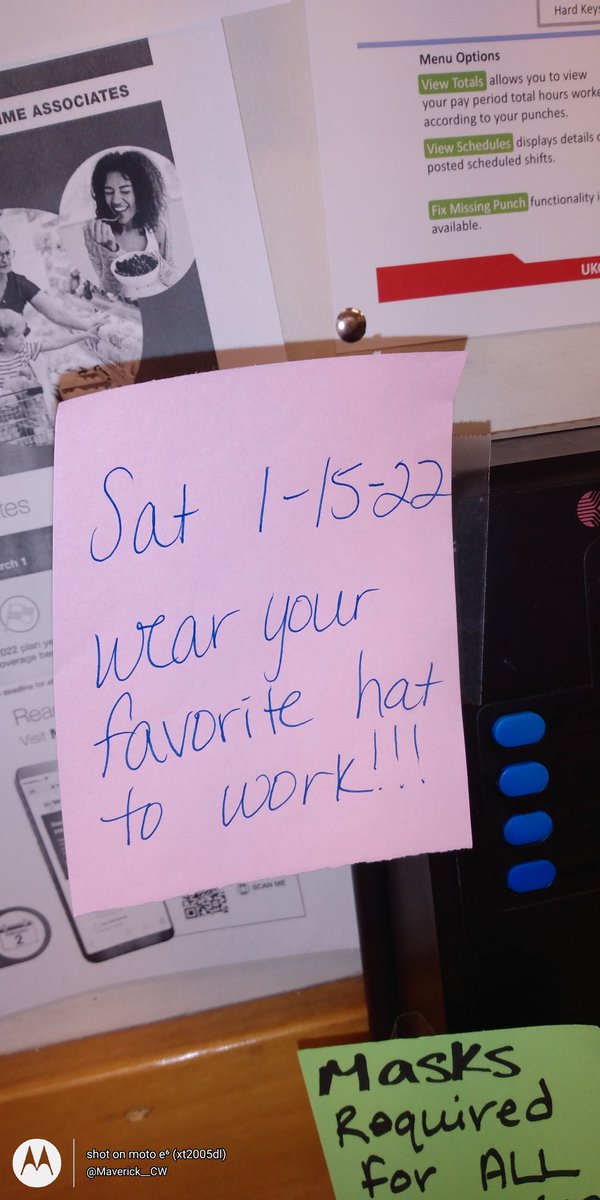 Hard Keys
Menu Options
View Totals allows you to view
your pay period total hours worke
according to your punches.
View Schedules displays details o
posted scheduled shifts.
Fix Missing Punch functionality i
available.
UK
IME ASSOCIATES
Sat 1-15-22
wear your
favorite hat
to work!!!
tes
rch 1
2022 plan ye
overage be
deadline for
Rea
Visit
2
SCAN ME
Masks
Required
for ALL
shot on moto e⁶ (xt2005dl)
@Maverick__CW